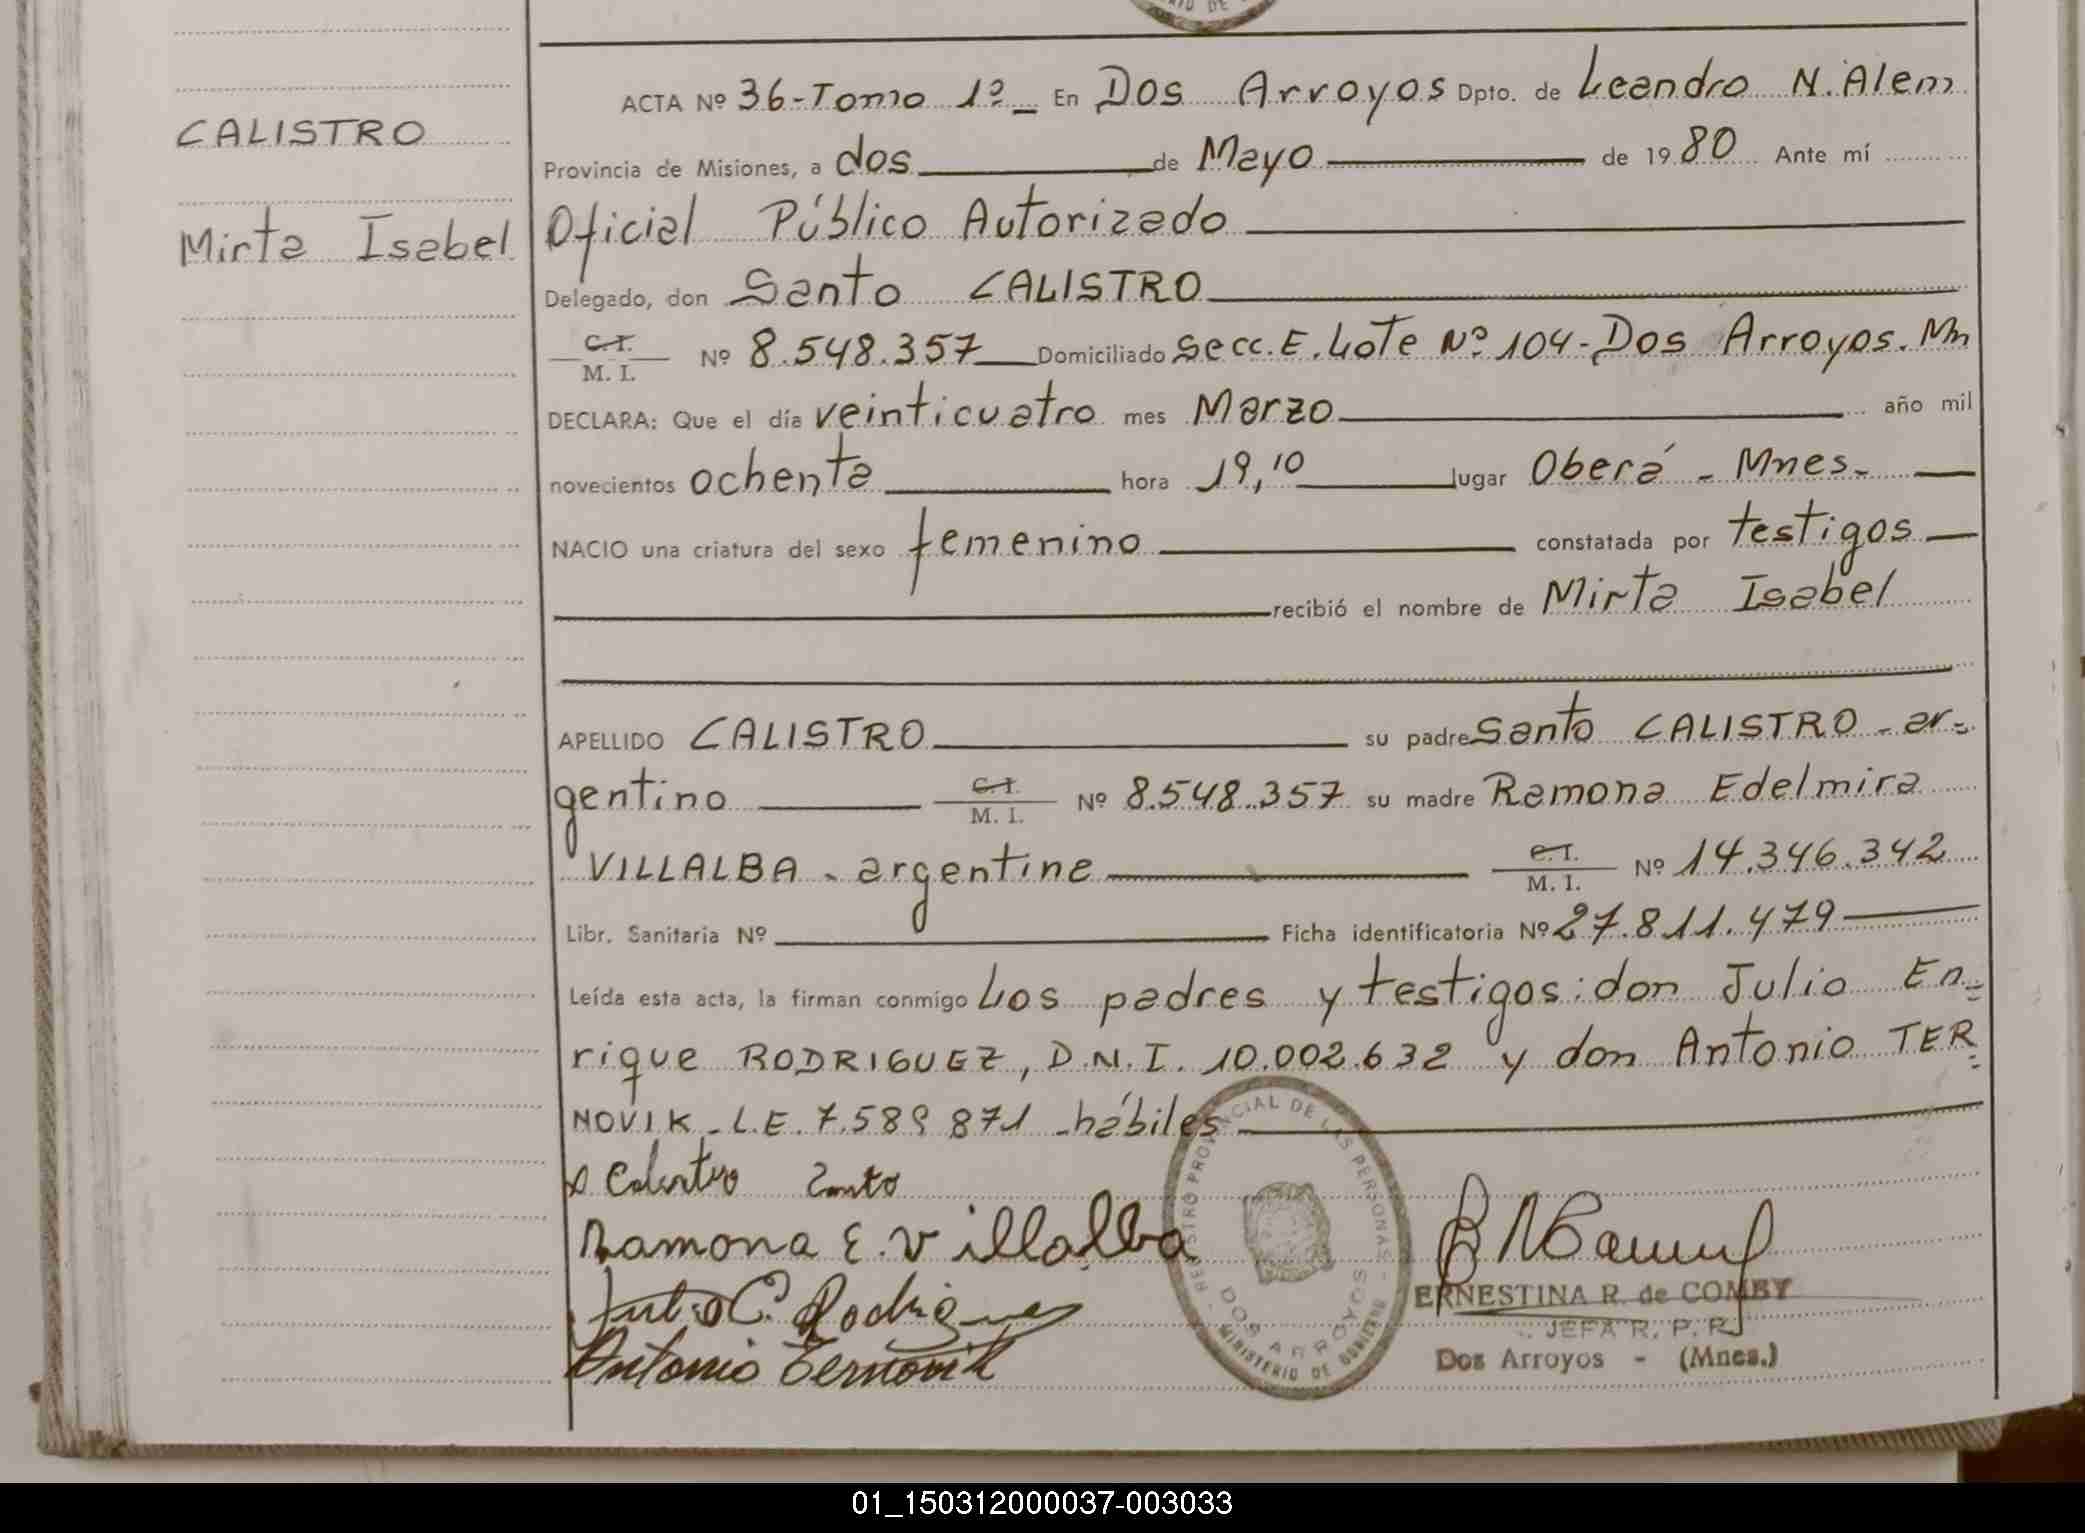 RIO DE
ACTA Nº 36-Tomo 1º- En Dos Arroyos Dpto. de Leandro N. Alem
CALISTRO
Provincia de Misiones, a dos de Mayo de 1980 Ante mí
Mirta Isabel
Oficial Público Autorizado
Delegado, don Santo CALISTRO
C.I.
M. I. Nº 8.548.357 Domiciliado Secc. E. Lote Nº 104-Dos Arroyos. Mn
DECLARA: Que el día veinticuatro mes Marzo año mil
novecientos ochenta hora 19,10 lugar Oberá - Mnes.
NACIO una criatura del sexo femenino constatada por testigos
recibió el nombre de Mirta Isabel
APELLIDO CALISTRO su padre Santo CALISTRO - ar-
gentino C.I. M. I. Nº 8.548.357 su madre Ramona Edelmira
VILLALBA - argentina C.I. M. I. Nº 14.346.342
Libr. Sanitaria Nº Ficha identificatoria Nº 27.811.479
Leída esta acta, la firman conmigo Los padres y testigos: don Julio En-
rique RODRIGUEZ, D.N.I. 10.002.632 y don Antonio TER-
NOVIK - L.E. 7.589 871 - hábiles
Calistro Santo
Ramona E. Villalba
Julio E. Rodriguez
Antonio Ternovik
REGISTRO PROVINCIAL DE LAS PERSONAS
DOS ARROYOS
MINISTERIO DE GOBIERNO
ERNESTINA R. de COMBY
JEFA R. P. P.
Dos Arroyos - (Mnes.)
01_150312000037-003033